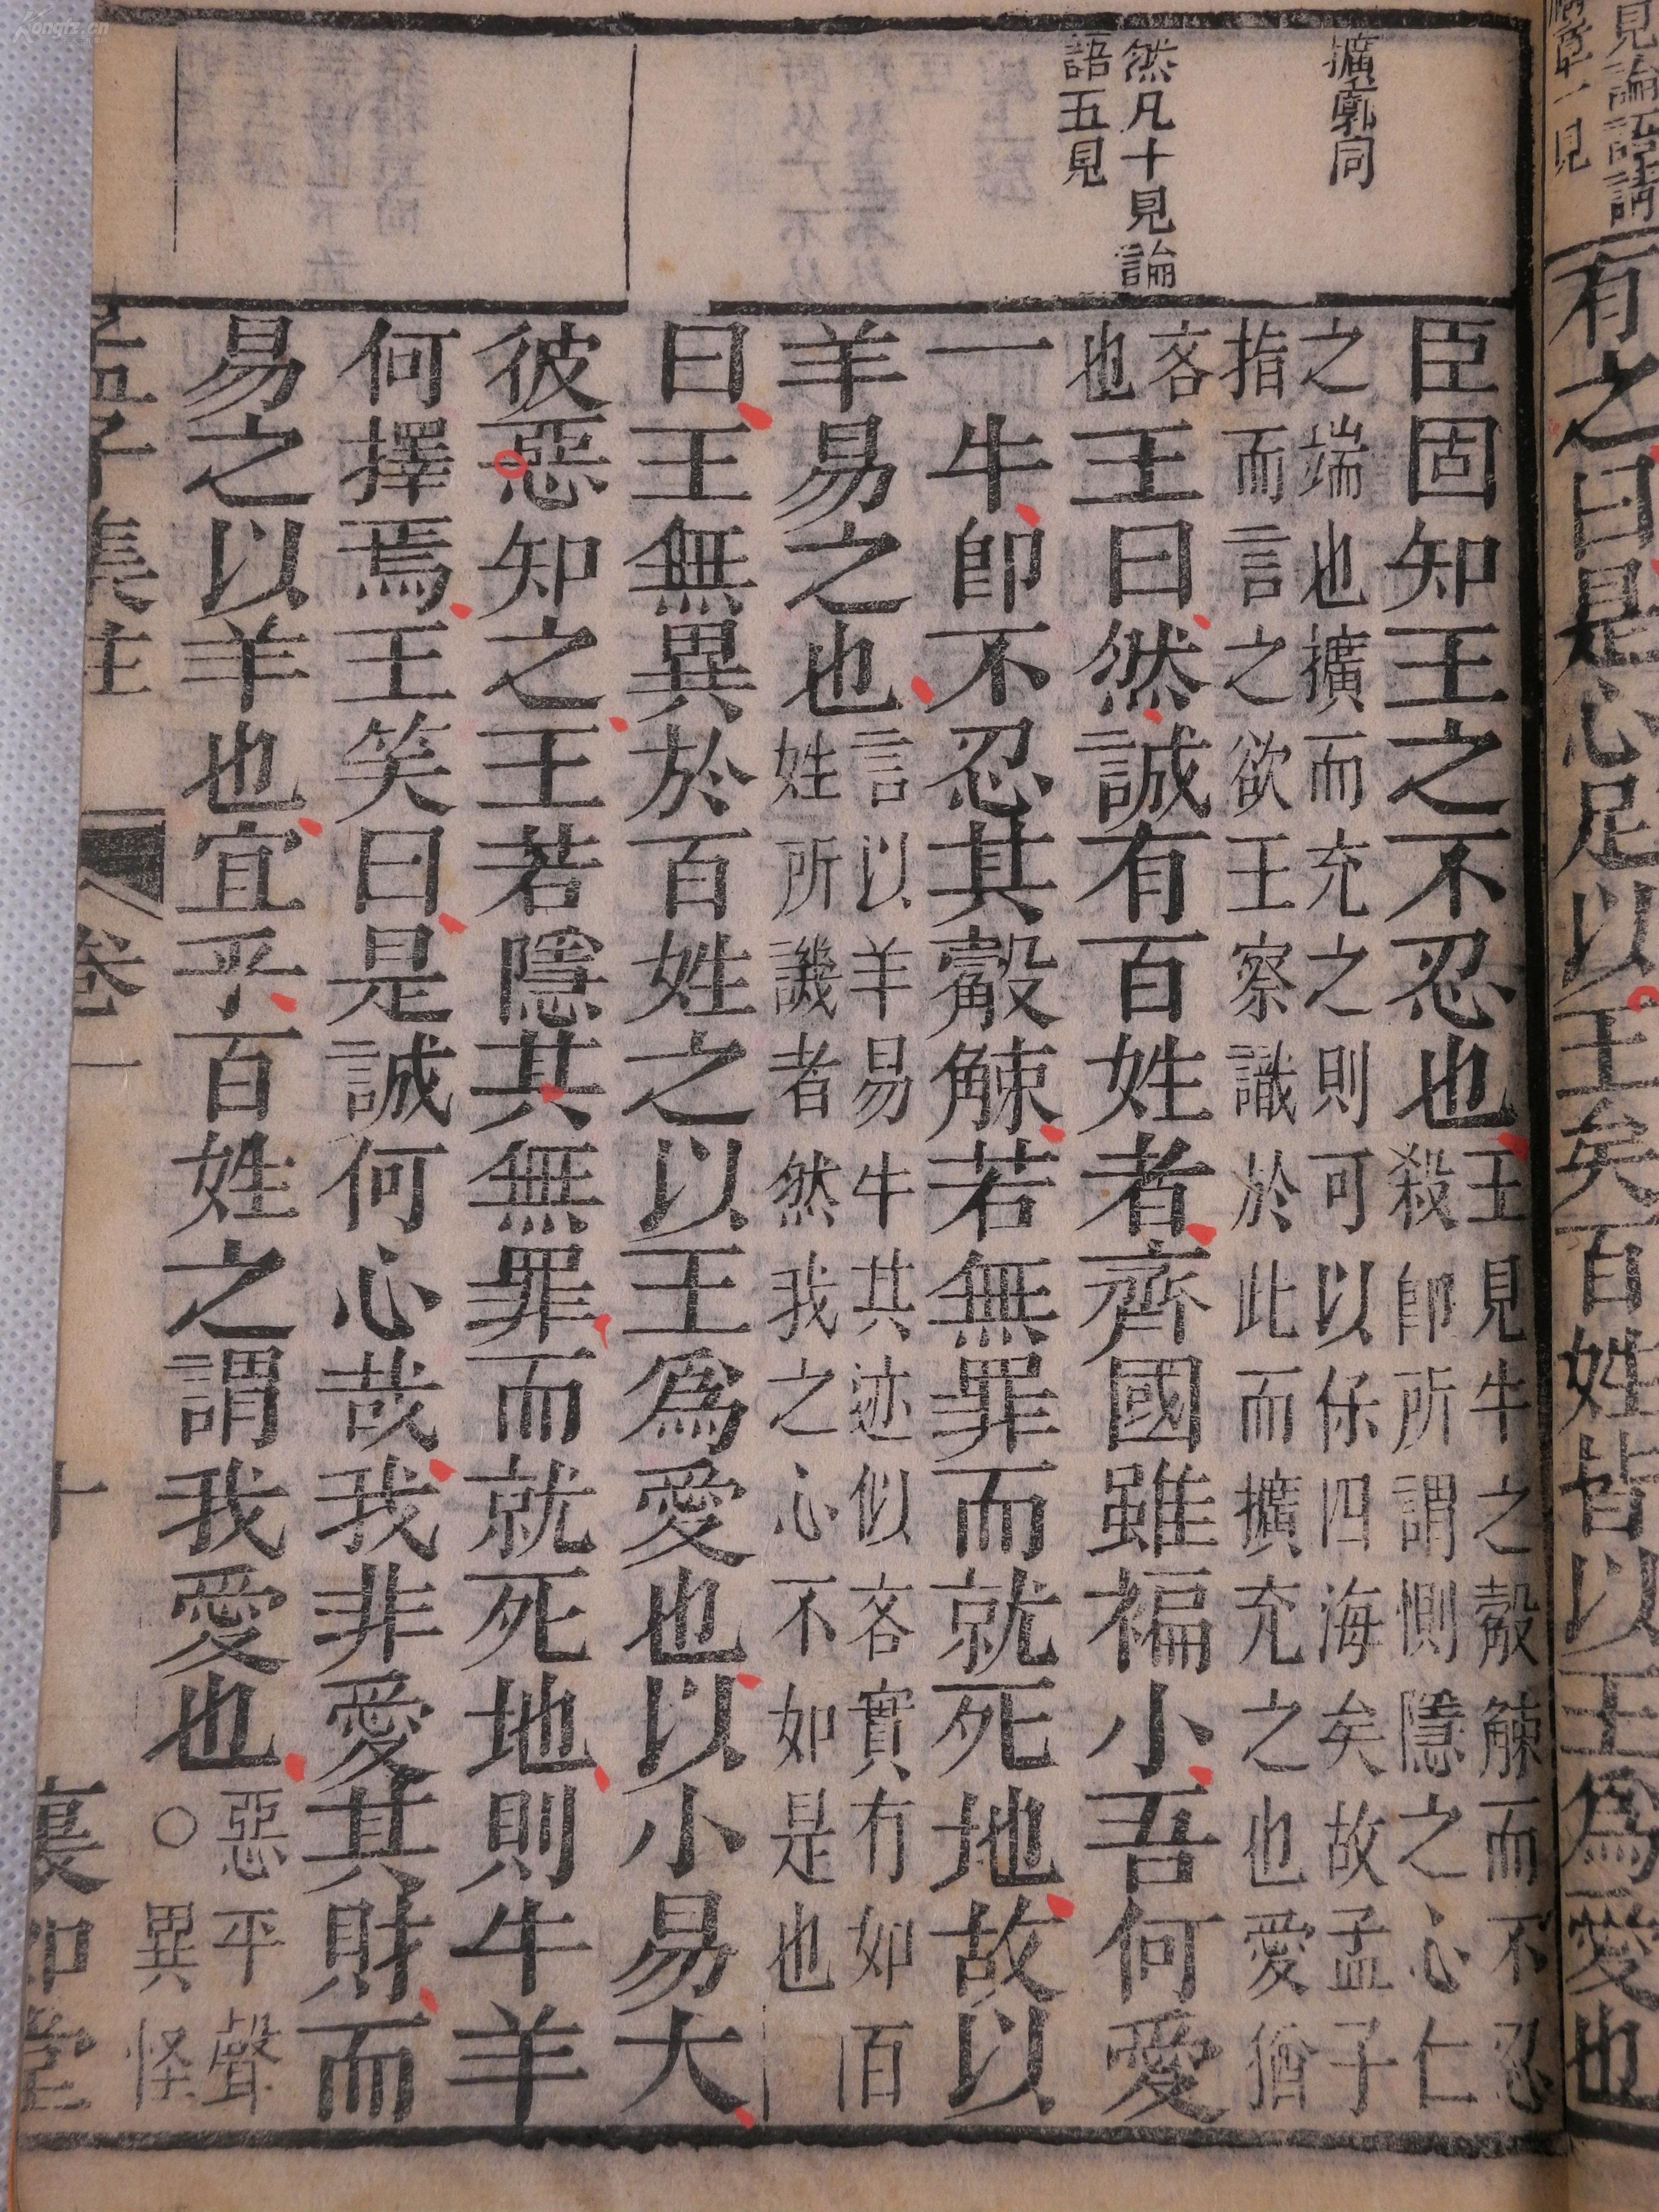 見論語請
章一見
有之曰是心足以王矣百姓皆以王爲愛也
擴廓同
然凡十見論
語五見
臣固知王之不忍也
王見牛之觳觫而不忍
殺即所謂惻隱之心仁
之端也擴而充之則可以保四海矣故孟子
指而言之欲王察識於此而擴充之也愛猶
吝
也
王曰然誠有百姓者齊國雖褊小吾何愛
一牛即不忍其觳觫若無罪而就死地故以
羊易之也
言以羊易牛其迹似吝實有如百
姓所譏者然我之心不如是也
曰王無異於百姓之以王爲愛也以小易大
彼惡知之王若隱其無罪而就死地則牛羊
何擇焉王笑曰是誠何心哉我非愛其財而
易之以羊也宜乎百姓之謂我愛也
惡平聲
○異怪
孟子集註 卷一 十
Kongfz.cn